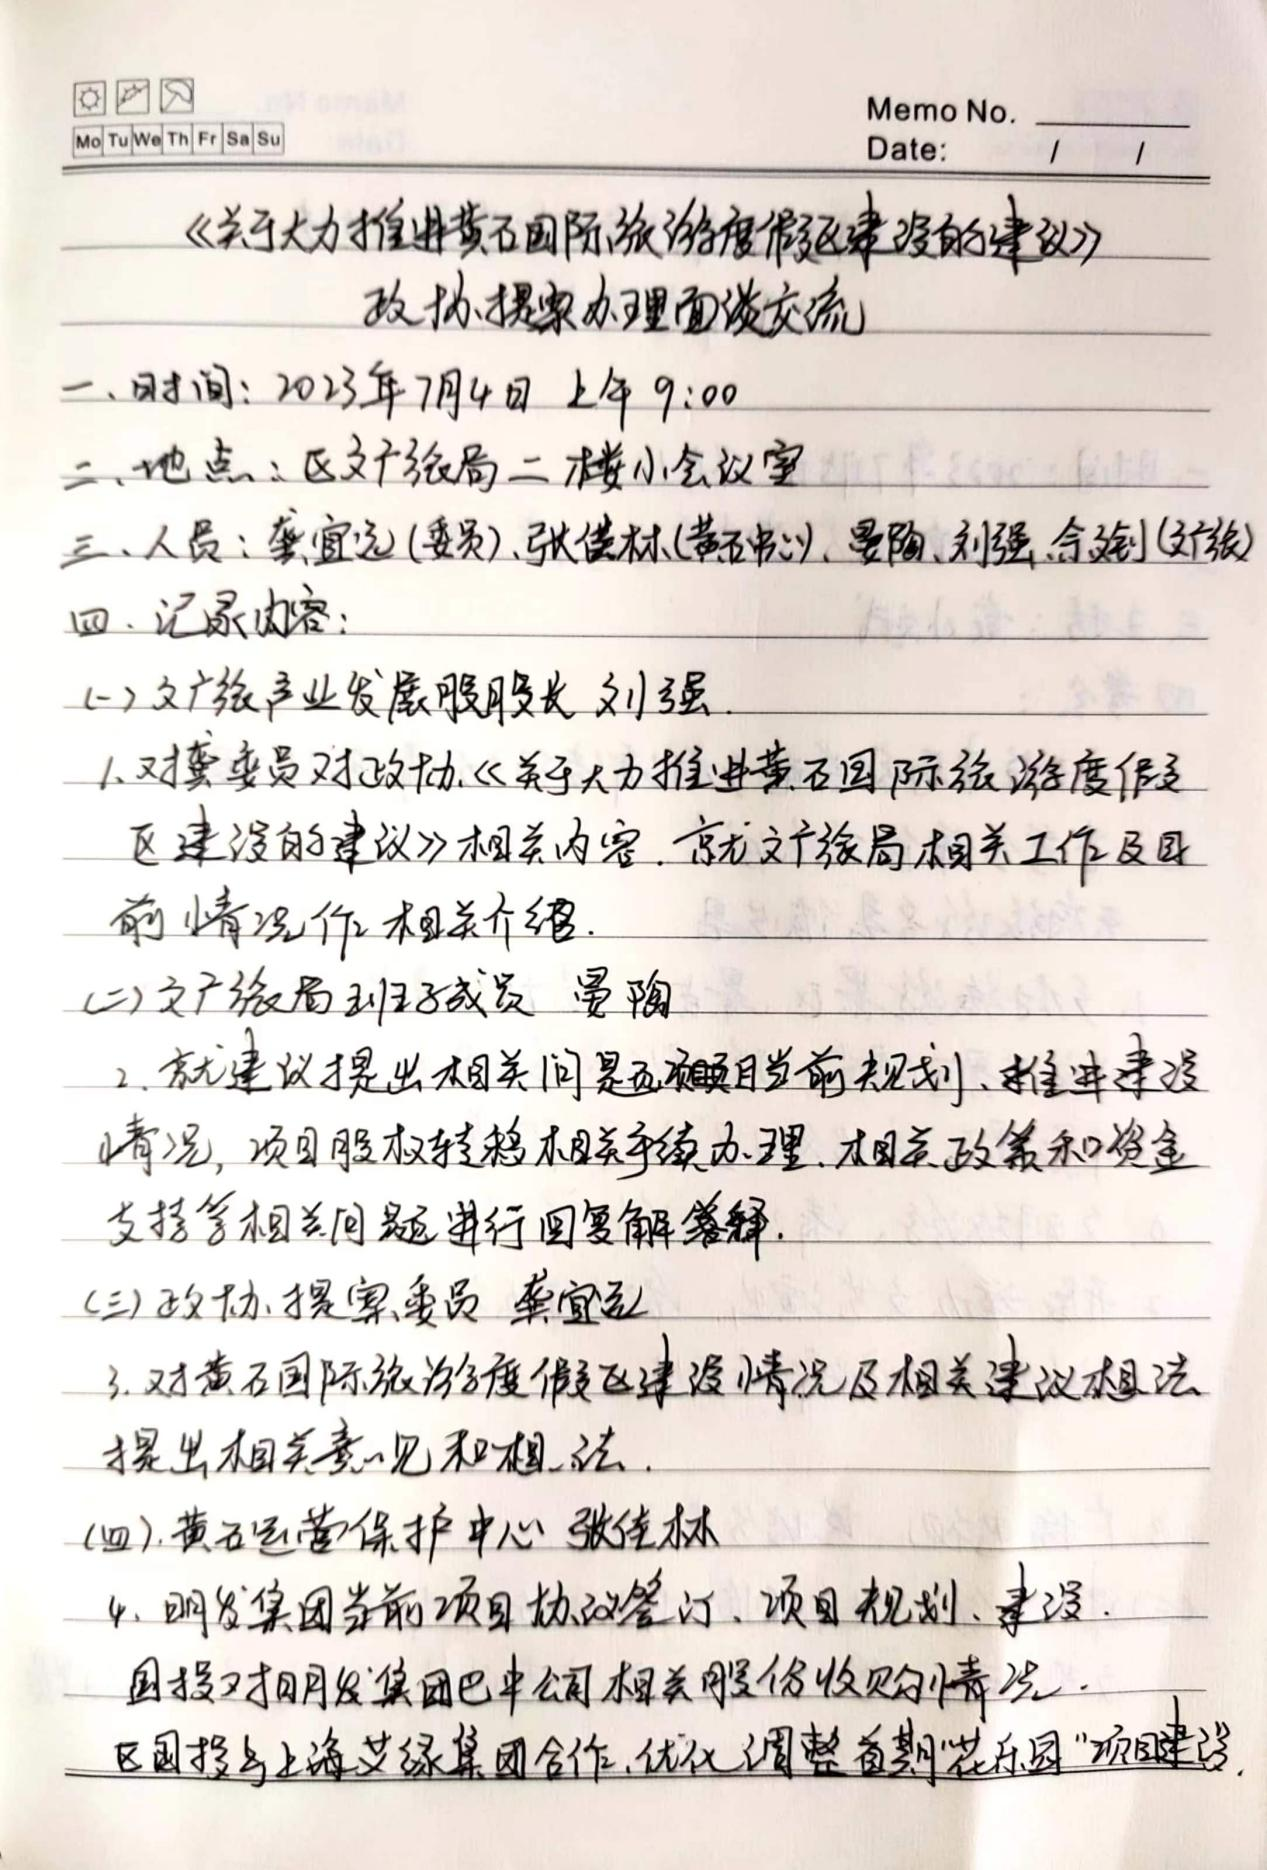 Memo No.
Mo Tu We Th Fr Sa Su
Date: / /
《关于大力推进黄石国际旅游度假区建设的建议》
政协提案办理面谈交流
一、时间：2023年7月4日 上午 9:00
二、地点：区文广旅局二楼小会议室
三、人员：龚宜远(委员)、张佳林(黄石中心)、晏陶、刘强、(文广旅)
四、记录内容：
(一)文广旅产业发展股股长 刘强.
1、对龚委员对政协《关于大力推进黄石国际旅游度假
区建设的建议》相关内容，就文广旅局相关工作及目
前情况作相关介绍.
(二)文广旅局班子成员 晏陶
2、就建议提出相关问题项目当前规划、推进建设
情况，项目股权转移相关手续办理、相关政策和资金
支持等相关问题进行回复解释.
(三)政协提案委员 龚宜远
3、对黄石国际旅游度假区建设情况及相关建议想法
提出相关意见和想法.
(四).黄石运营保护中心 张佳林
4、明发集团当前项目协议签订、项目规划、建设.
国投对明发集团巴中公司相关股份收购情况.
区国投与上海艾绿集团合作，优化调整首期"花乐园"项目建设.